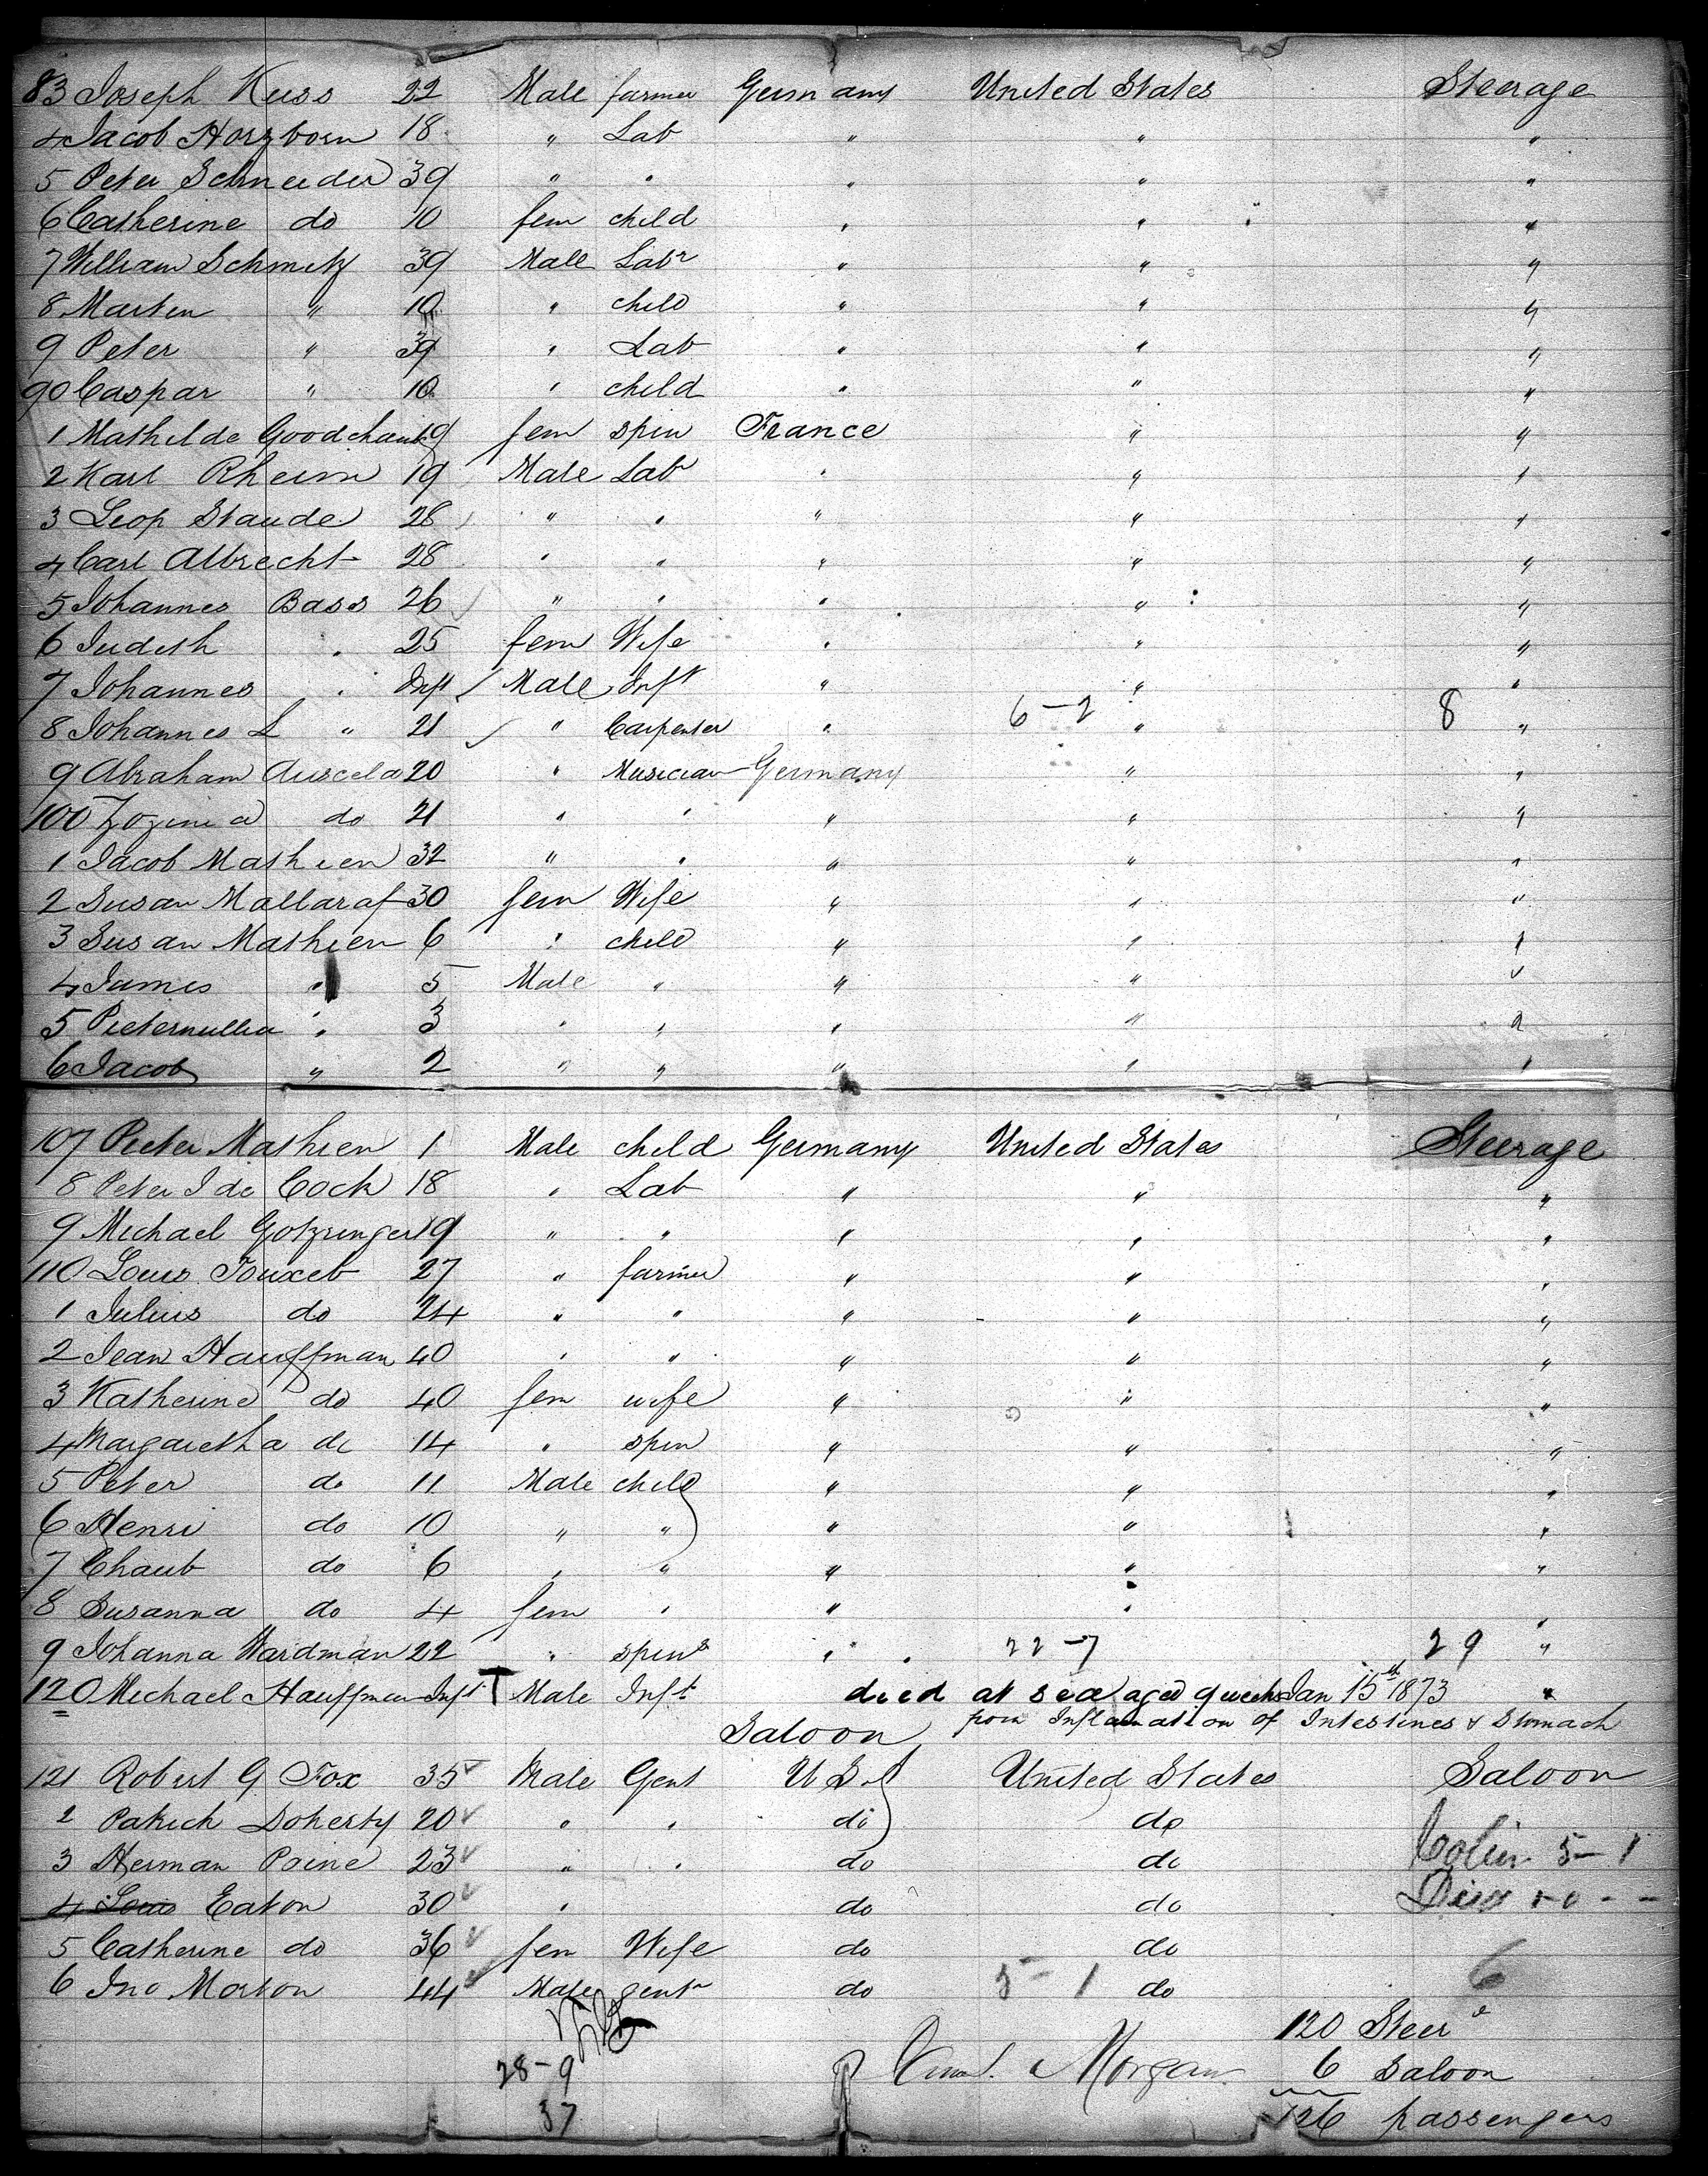 83 Joseph Kuss 22 Male farmer Germany United States Steerage
4 Jacob Horzborn 18 " Lab " " "
5 Peter Schneider 39 " " " " "
6 Catherine do 10 fem child " " "
7 William Schmitz 39 Male Labr " " "
8 Martin " 10 " child " " "
9 Peter " 39 " Lab " " "
90 Caspar " 10 " child " " "
1 Mathilde 19 fem spin France " "
2 Karl Rheim 19 Male Labr " " "
3 Leop Staude 28 " " " " "
4 Carl Albrecht 28 " " " " "
5 Johannes Bass 26 " " " " "
6 Judith " 25 fem Wife " " "
7 Johannes " Inft Male Inft " " "
6-2 8
8 Johannes L " 21 " Carpenter " " "
9 Abraham 20 " Musician Germany " "
100 do 21 " " " " "
1 Jacob Mathien 32 " " " " "
2 Susan Mallaraf 30 fem Wife " " "
3 Susan Mathien 6 " child " " "
4 James " 5 Male " " " "
5 Pieternullia " 3 " " " " "
6 Jacob " 2 " " " " "
107 Pieter Mathien 1 Male child Germany United States Steerage
8 Peter J de Cock 18 " Lab " " "
9 Michael Gotzringer 19 " " " " "
110 Louis Touxeb 27 " farmer " " "
1 Julius do 24 " " " " "
2 Jean Hauffman 40 " " " " "
3 Katherine do 40 fem wife " " "
4 Margaretha do 14 " spin " " "
5 Peter do 11 Male child " " "
6 Henri do 10 " " " " "
7 Chaub do 6 " " " " "
8 Susanna do 4 fem " " " "
9 Johanna Wardman 22 " spins " 22-7 29 "
120 Michael Hauffman Inft T Male Inft died at sea aged 9 weeks Jan 15th 1873 "
Saloon from Inflamation of Intestines & Stomach
121 Robert G Fox 35 Male Gent U S A United States Saloon
2 Patrick Doherty 20 " " do do
3 Herman Poine 23 " " do do
4 Eaton 30 " do do
5 Catherine do 36 fem Wife do do
6 Jno Morton 44 Male gentn do 5-1 do 6
120 Steere
28-9 Morgan 6 Saloon
37 126 passengers